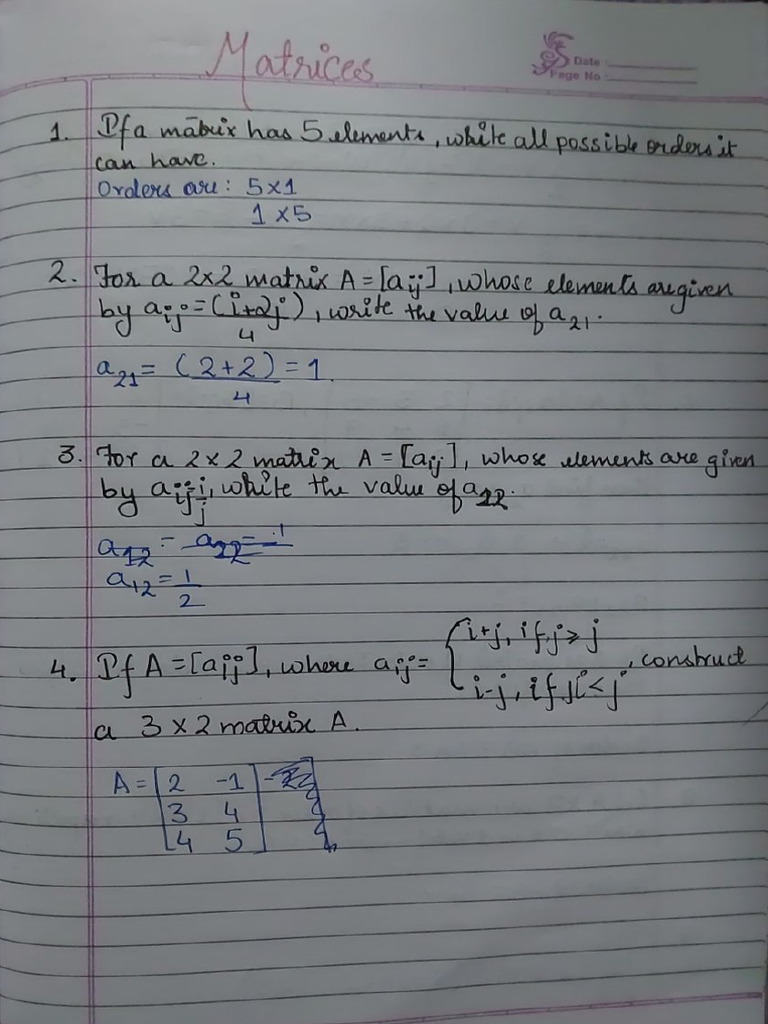 Matrices
Date :
Page No :
1. If a matrix has 5 elements, write all possible orders it
can have.
Orders are: 5×1
1×5
2. For a 2×2 matrix A = [aij], whose elements are given
by aij = (i+2j), write the value of a21.
4
a21 = (2+2) = 1
4
3. For a 2×2 matrix A = [aij], whose elements are given
by aij = i/j, write the value of a12.
a12 = a22 = 1
a12 = 1
2
4. If A = [aij], where aij = { i+j, if i ≥ j
i-j, if i < j , construct
a 3×2 matrix A.
A = [2 -1]
3 4
4 5